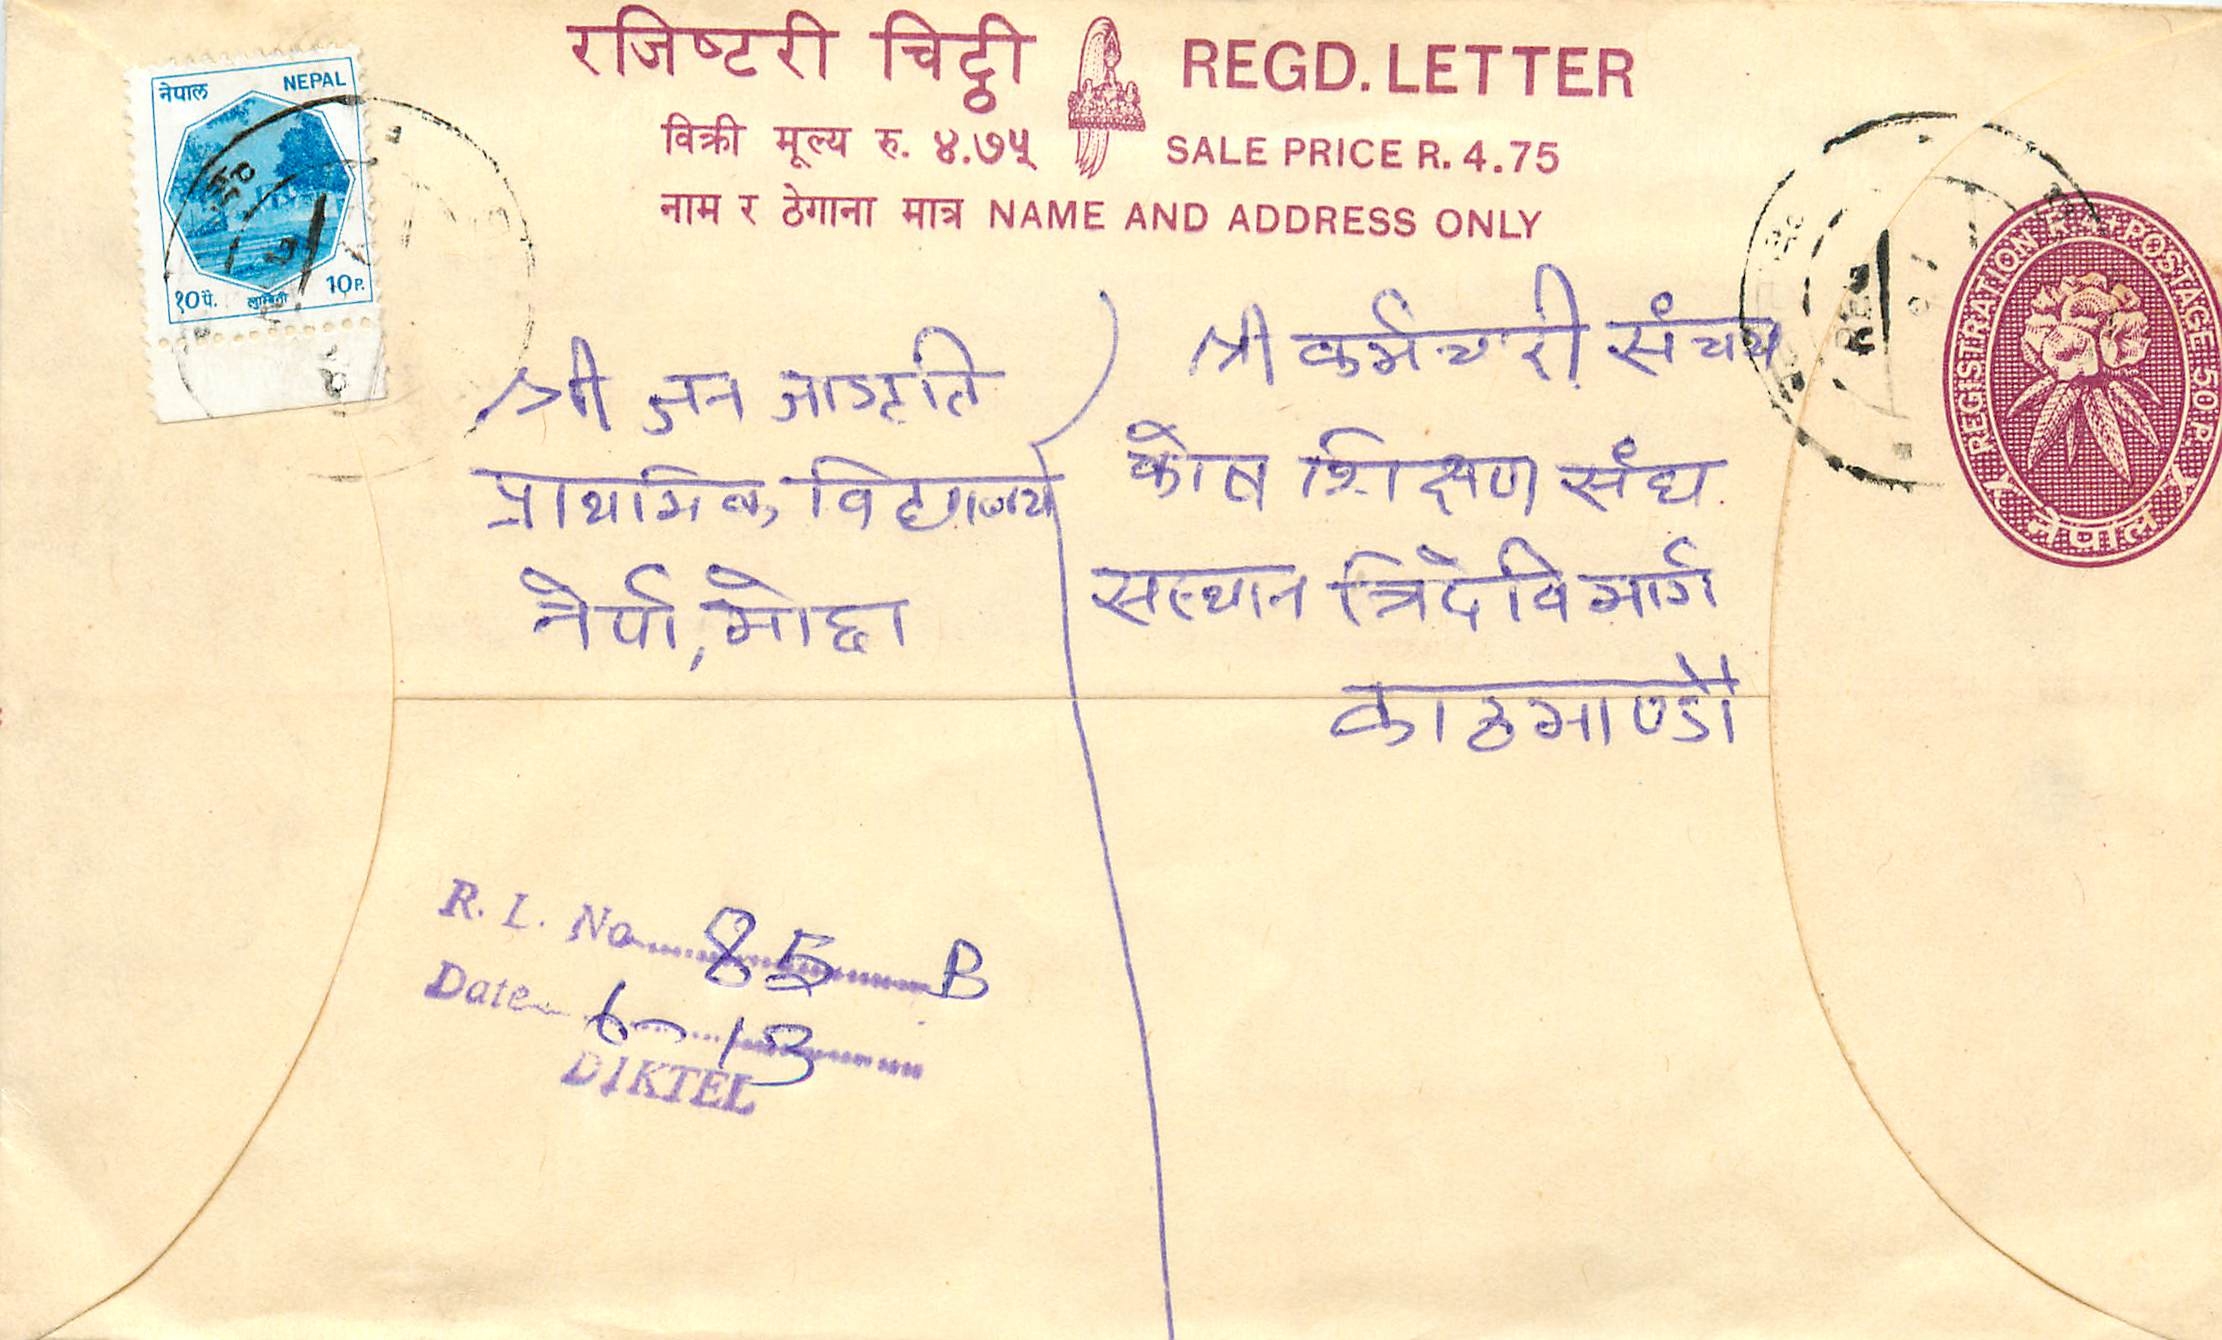 रजिष्टरी चिठ्ठी REGD. LETTER
विक्री मूल्य रु. ४.७५ SALE PRICE R. 4.75
नाम र ठेगाना मात्र NAME AND ADDRESS ONLY
नेपाल NEPAL
१०पै. लुम्बिनी 10P.
REGISTRATION POSTAGE 50 P.
नेपाल
श्री जन जागृति
प्राथमिक विद्यालय
नेर्पा,
श्री कर्मचारी संचय
कोष शिक्षण संघ
सस्थान त्रिदेवि मार्ग
काठमाण्डौ
R. L. No 85 B
Date 6-13
DIKTEL